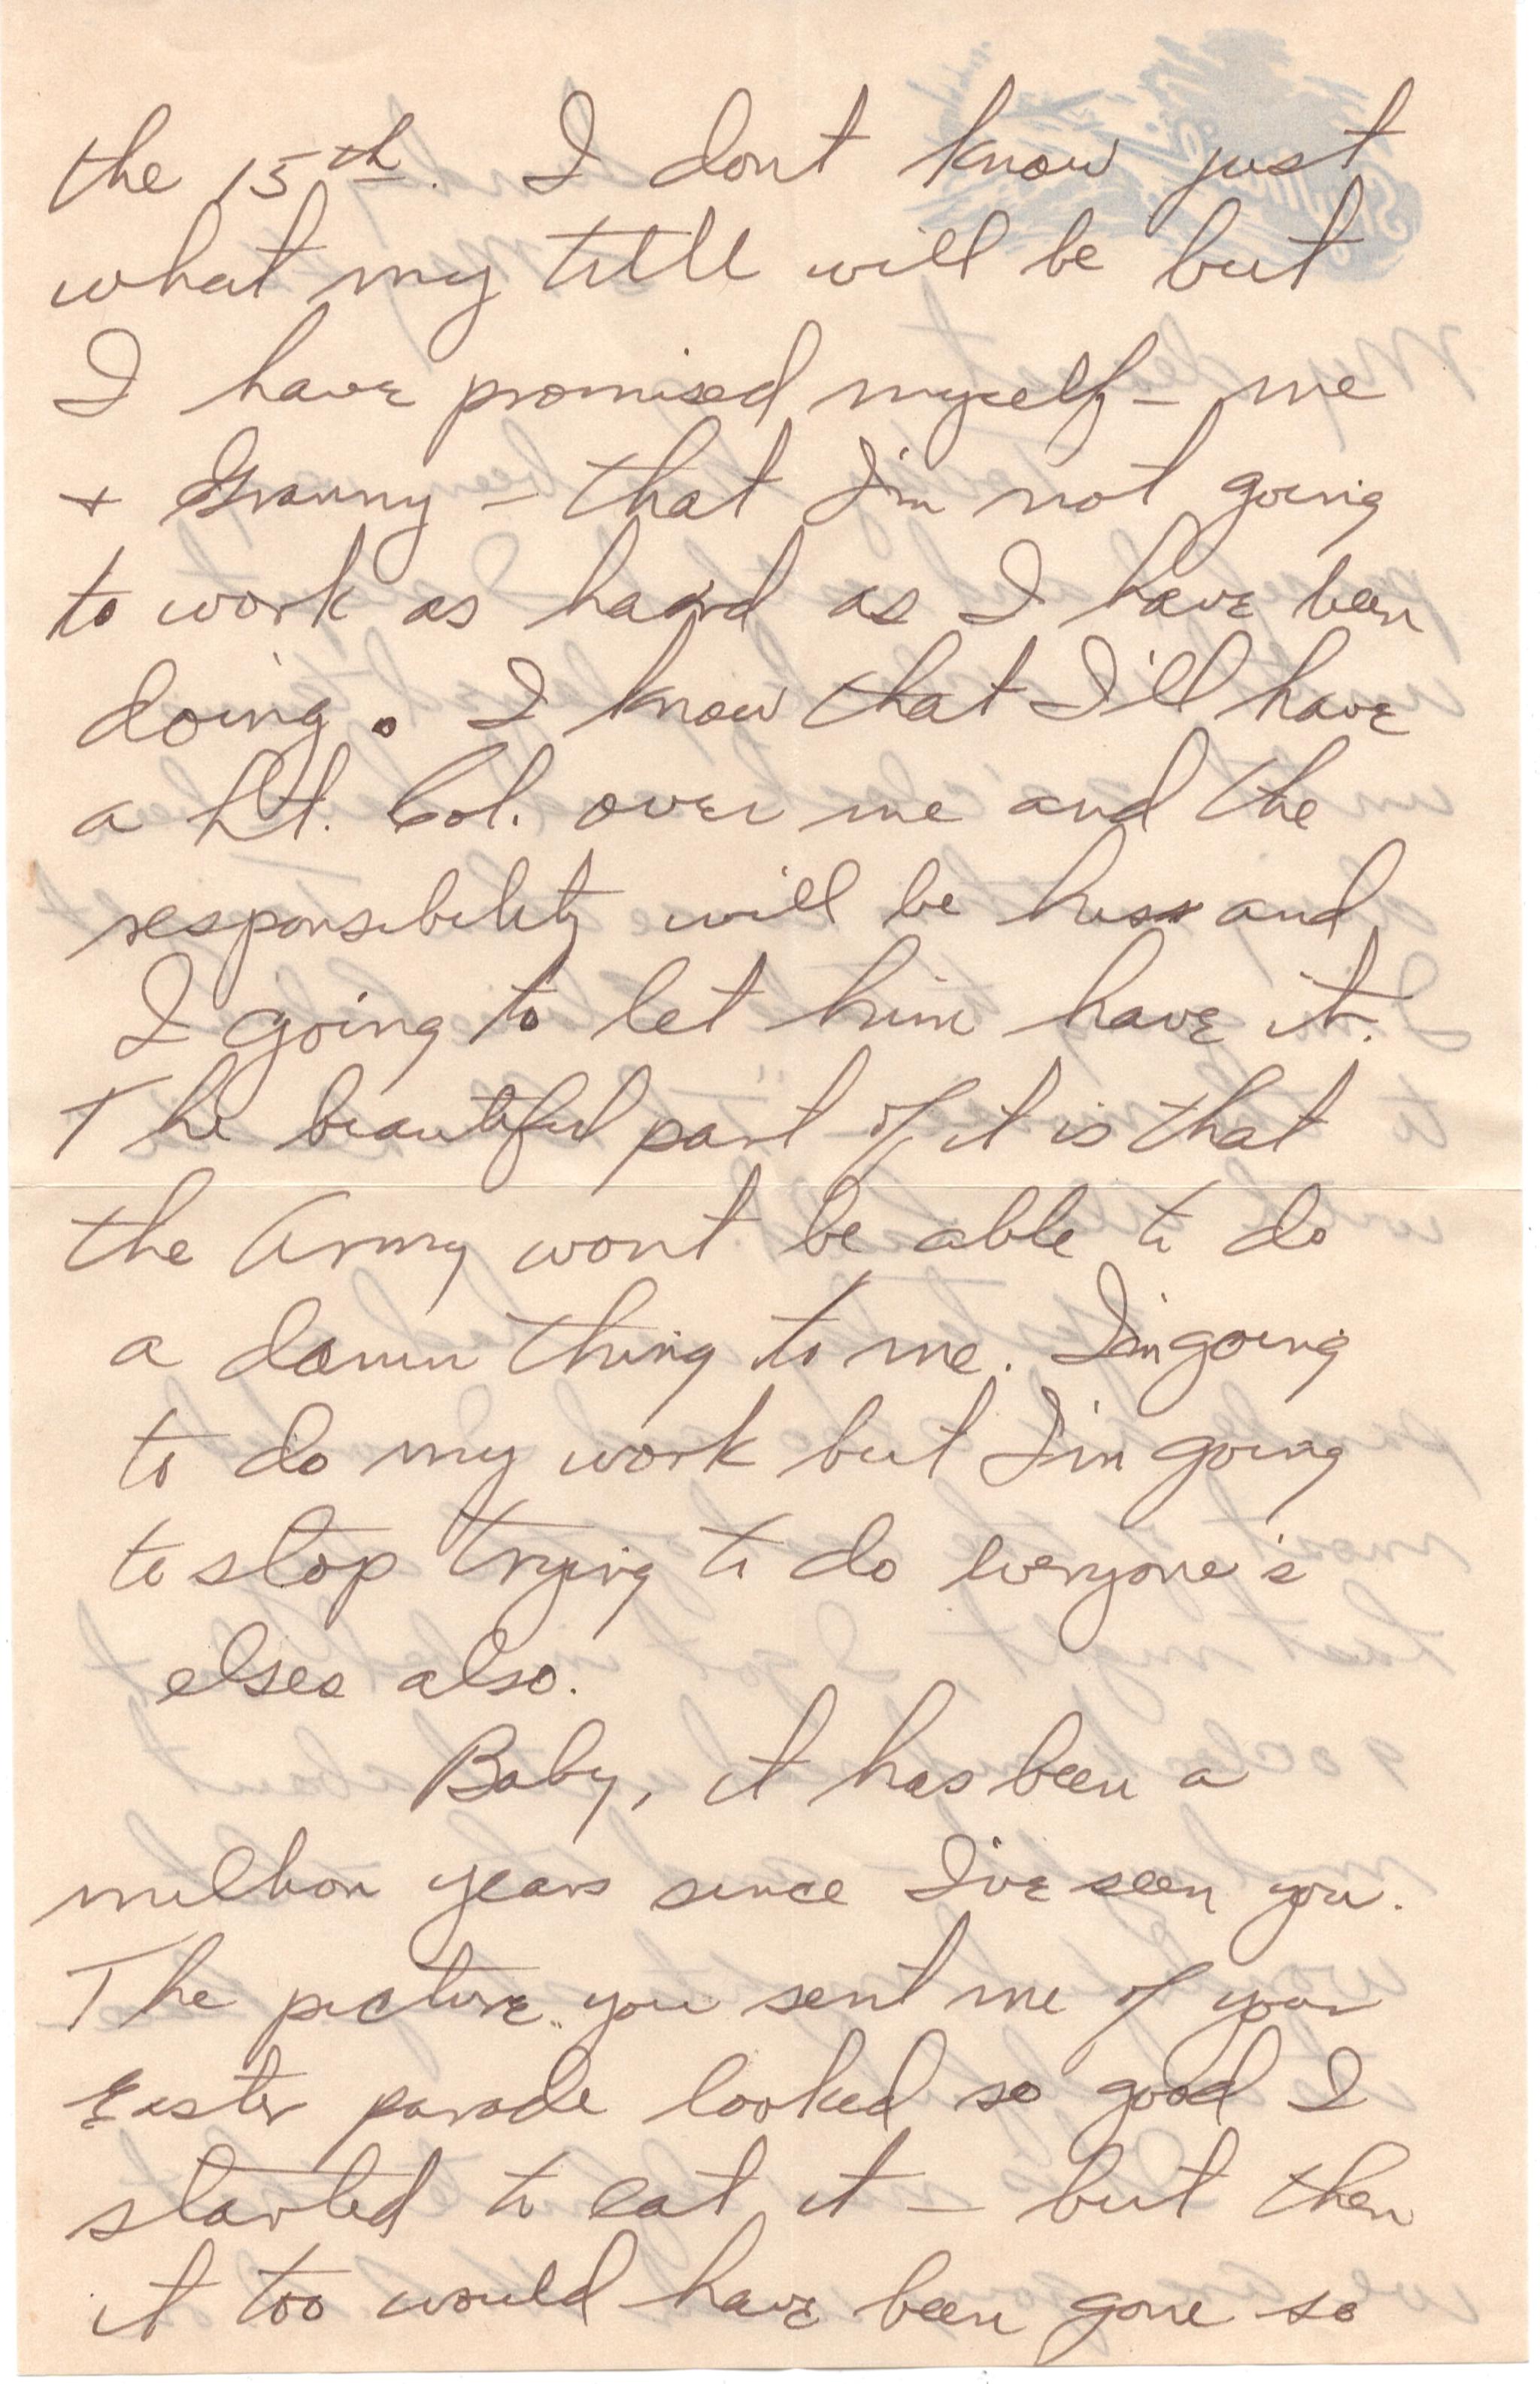 the 15th. I dont know just
what my title will be but
I have promised myself - me
+ Granny - that I'm not going
to work as haard as I have been
doing. I know that I'll have
a Lt. Col. over me and the
responsibility will be his and
I going to let him have it.
The beautiful part of it is that
the Army wont be able to do
a damn thing to me. I'm going
to do my work but I'm going
to stop trying to do everyone's
elses also.
Baby, it has been a
million years since I've seen you.
The picture you sent me of your
Easter parade looked so good I
started to eat it - but then
it too would have been gone so